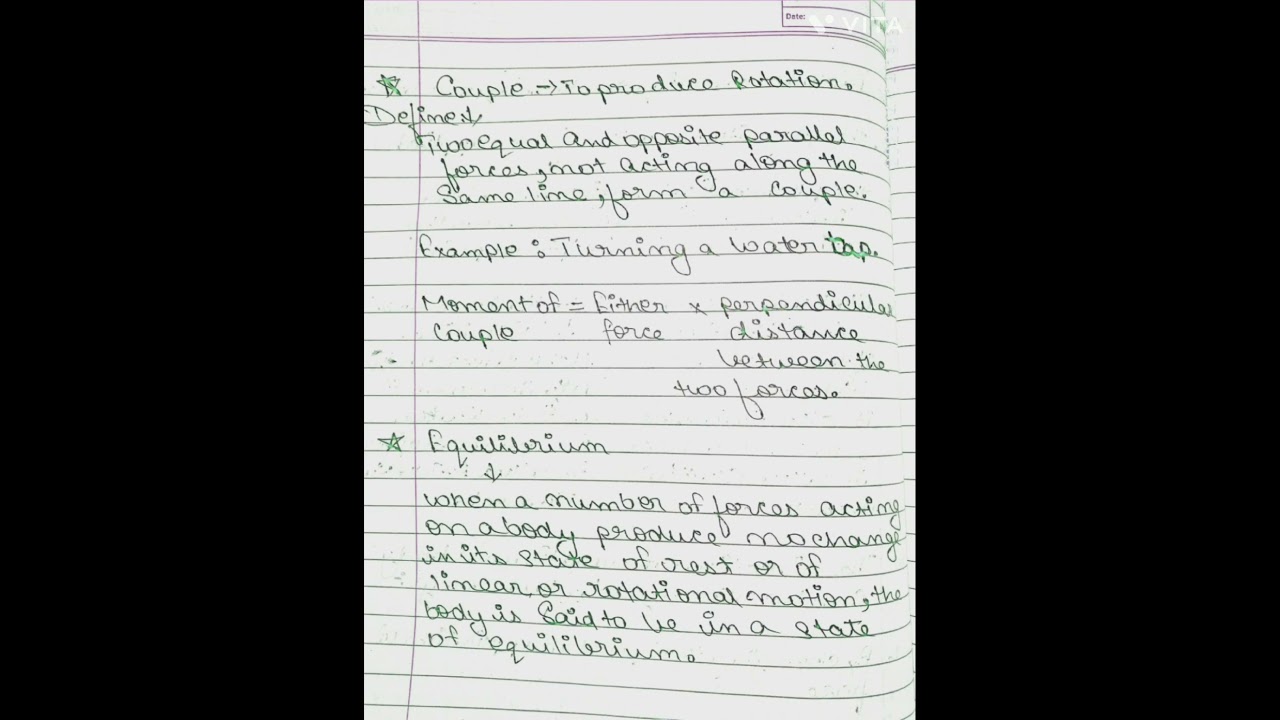 Date:
VITA
☆ Couple → To produce Rotation.
Define ↓
Two equal and opposite parallel
forces, not acting along the
Same line, form a couple.
Example : Turning a water tap.
Moment of = Either × perpendicular
couple force distance
between the
two forces.
☆ Equilibrium
↓
when a number of forces acting
on a body produce no change
in its state of rest or of
linear or rotational motion, the
body is Said to be in a state
of equilibrium.